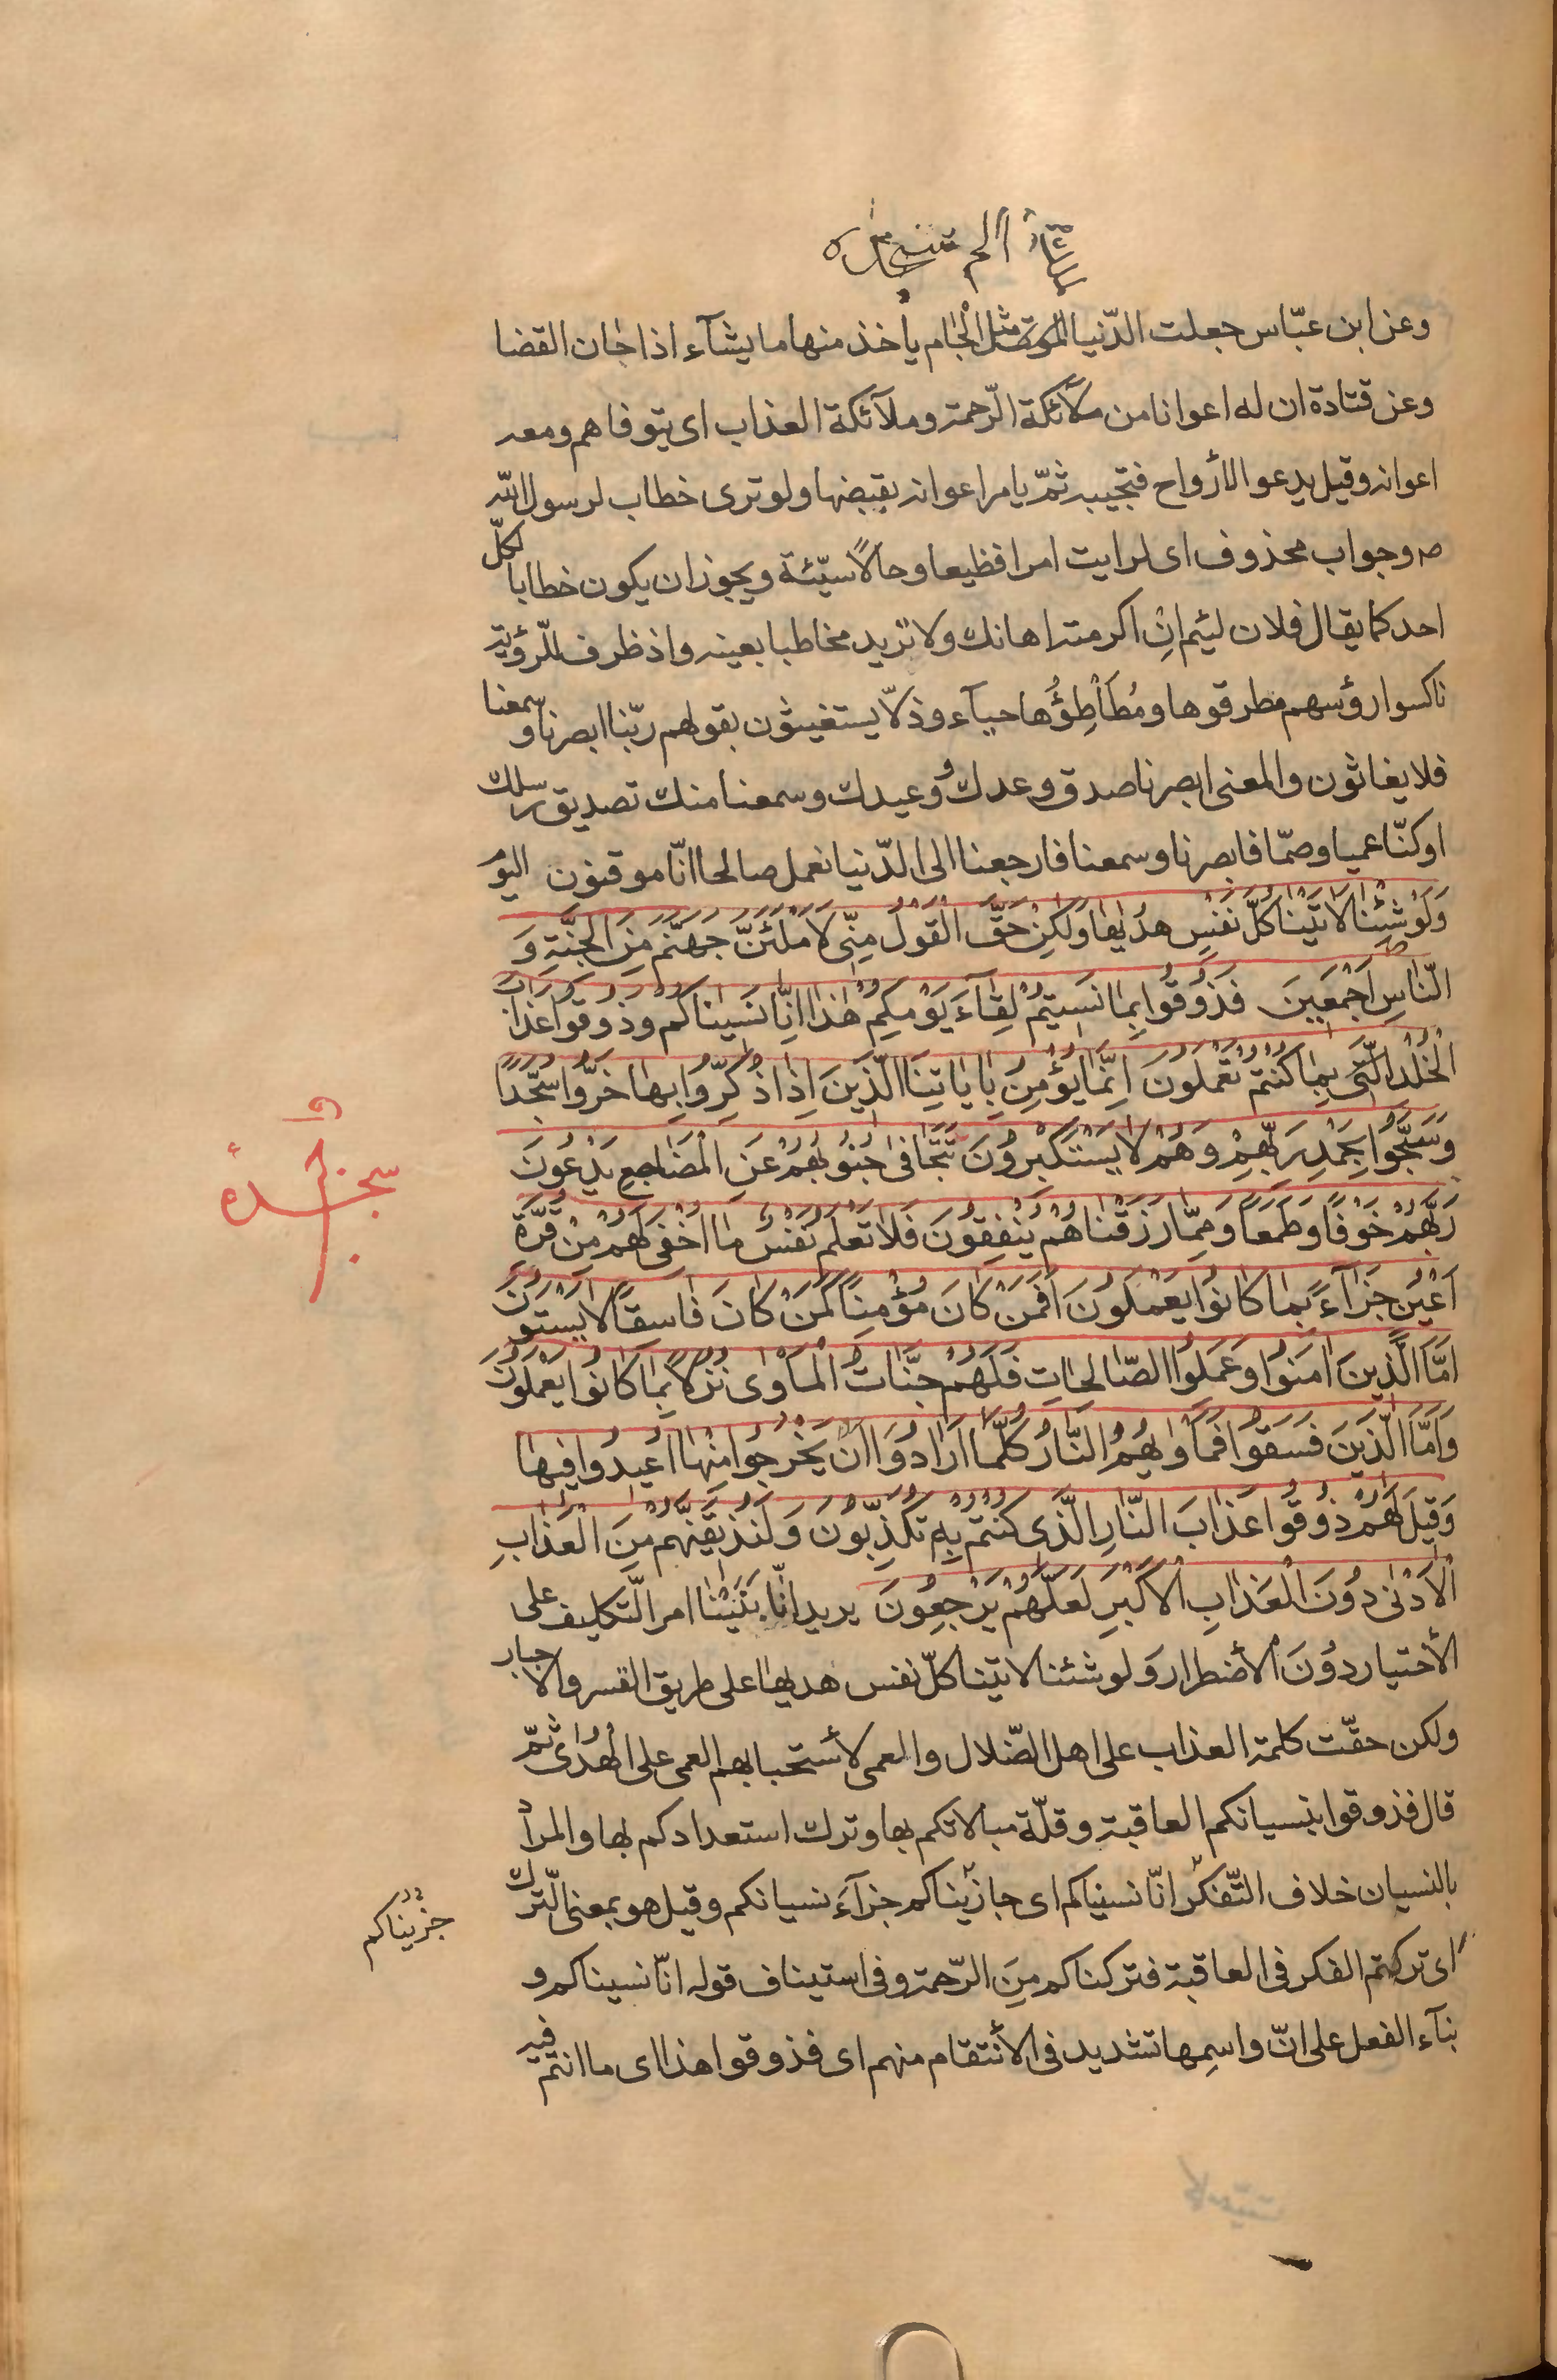 الم تنزيل
وعن ابن عبّاس جعلت الدّنيا لملك الموت مثل الجام يأخذ منها ما يشآء اذا حان القضا
وعن قتادة ان له اعوانا من ملآئكة الرّحمة وملآئكة العذاب اى يتوفاهم ومعه
اعوانه وقيل يدعو الأرواح فتجيبه ثمّ يامر اعوانه بقبضها ولو ترى خطاب لرسول الله
ص وجواب محذوف اى لرايت امرا فظيعا وحالًا سيّئة ويجوز ان يكون خطابا لكلّ
احد كما يقال فلان لئيم انِ اكرمته اهانك ولا تريد مخاطبا بعينه واذ ظرف للرّؤية
ناكسوا رؤسهم مطرقوها ومُطَأْطِؤُها حيآء وذلّا يستغيثون بقولهم ربّنا ابصرنا وسمعنا
فلا يغاثون والمعنى ابصرنا صدق وعدك ووعيدك وسمعنا منك تصديق رسلك
او كنّا عميا وصمّا فابصرنا وسمعنا فارجعنا الى الدّنيا نعمل صالحا انّا موقنون اليوم
وَلَوْ شِئْنا لَاتَيْنا كُلَّ نَفْسٍ هُدٰيها وَلكِنْ حَقَّ الْقَوْلُ مِنّى لَاَمْلَئَنَّ جَهَنَّمَ مِنَ الْجِنَّةِ وَ
النّاسِ اَجْمَعينَ فَذُوقُوا بِما نَسيتُمْ لِقآءَ يَوْمِكُمْ هٰذا اِنّا نَسيناكُمْ وَذُوقُوا عَذابَ
الْخُلْدِ الَّتى بِما كُنْتُمْ تَعْمَلُونَ اِنَّما يُؤْمِنُ بِاياتِنَا الَّذينَ اِذا ذُكِّرُوا بِها خَرُّوا سُجَّدًا
وَسَبَّحُوا بِحَمْدِ رَبِّهِمْ وَهُمْ لا يَسْتَكْبِرُونَ تَتَجافى جُنُوبُهُمْ عَنِ الْمَضاجِعِ يَدْعُونَ
رَبَّهُمْ خَوْفًا وَطَمَعًا وَمِمّا رَزَقْناهُمْ يُنْفِقُونَ فَلا تَعْلَمُ نَفْسٌ ما اُخْفِىَ لَهُمْ مِنْ قُرَّةِ
اَعْيُنٍ جَزآءً بِما كانُوا يَعْمَلُونَ اَفَمَنْ كانَ مُؤْمِنًا كَمَنْ كانَ فاسِقًا لا يَسْتَوُونَ
اَمَّا الَّذينَ امَنُوا وَعَمِلُوا الصّالِحاتِ فَلَهُمْ جَنّاتُ الْمَأْوٰى نُزُلًا بِما كانُوا يَعْمَلُونَ
وَاَمَّا الَّذينَ فَسَقُوا فَمَأْوٰيهُمُ النّارُ كُلَّما اَرادُوا اَنْ يَخْرُجُوا مِنْها اُعيدُوا فيها
وَقيلَ لَهُمْ ذُوقُوا عَذابَ النّارِ الَّذى كُنْتُمْ بِهِ تُكَذِّبُونَ وَلَنُذيقَنَّهُمْ مِنَ الْعَذابِ
الْاَدْنٰى دُونَ الْعَذابِ الْاَكْبَرِ لَعَلَّهُمْ يَرْجِعُونَ يريد انّا بَنَيْنا امر التّكليف على
الأختيار دُونَ الأضطرار وَلو شئنا لاتينا كلّ نفس هديها على طريق القسر والاجبار
ولكن حقّت كلمة العذاب على اهل الضّلال والعمى لأستحبابهم العمى على الهُدٰى ثمّ
قال فذوقوا بنسيانكم العاقبة وقلّة مبالاتكم بها وترك استعدادكم لها والمرأد
بالنسيان خلاف التّفكّر انّا نسيناكم اى جازيناكم جزآءَ نسيانكم وقيل هو بمعنى التّرك
اى تركتم الفكر فى العاقبة فتركناكم مِنَ الرّحمة وفى استيناف قوله انّا نسيناكم و
بنآء الفعل على انّ واسمِها تشديد فى الأنتقام منهم اى فذوقوا هذا اى ما انتم فيه
سجده
جزيناكم